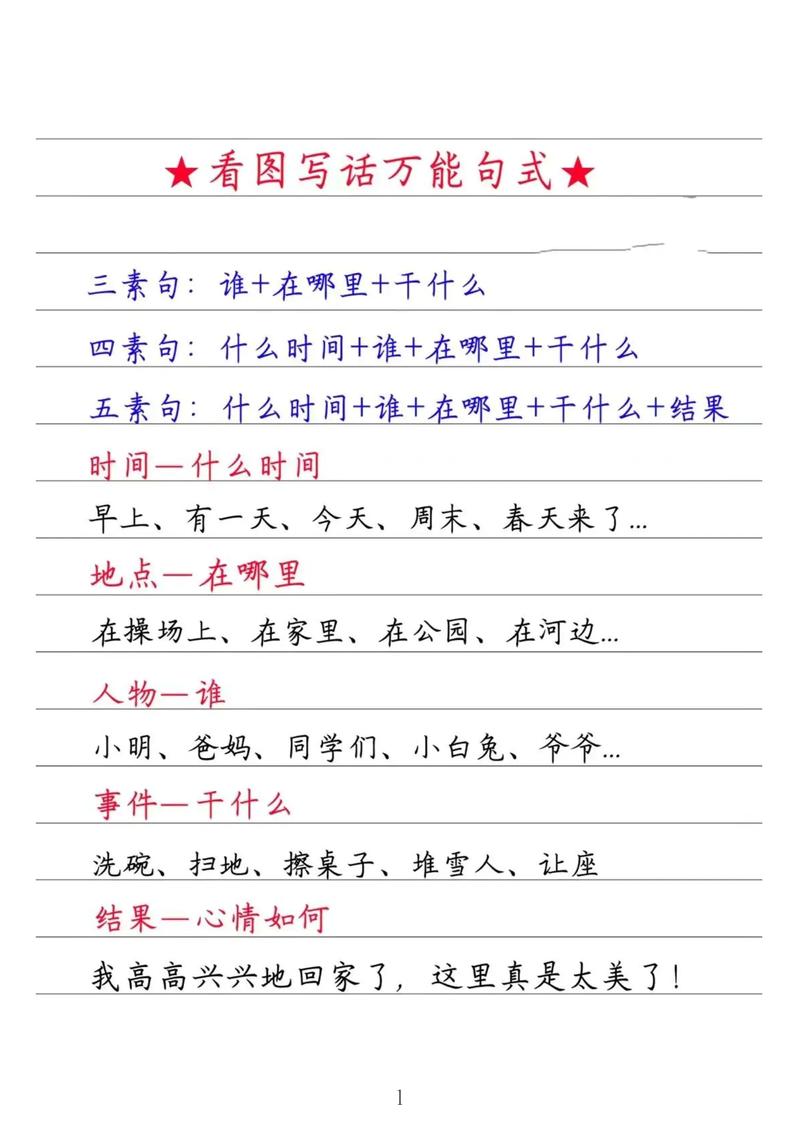 ★看图写话万能句式★
三素句：谁+在哪里+干什么
四素句：什么时间+谁+在哪里+干什么
五素句：什么时间+谁+在哪里+干什么+结果
时间—什么时间
早上、有一天、今天、周末、春天来了...
地点—在哪里
在操场上、在家里、在公园、在河边...
人物—谁
小明、爸妈、同学们、小白兔、爷爷...
事件—干什么
洗碗、扫地、擦桌子、堆雪人、让座
结果—心情如何
我高高兴兴地回家了，这里真是太美了！
1